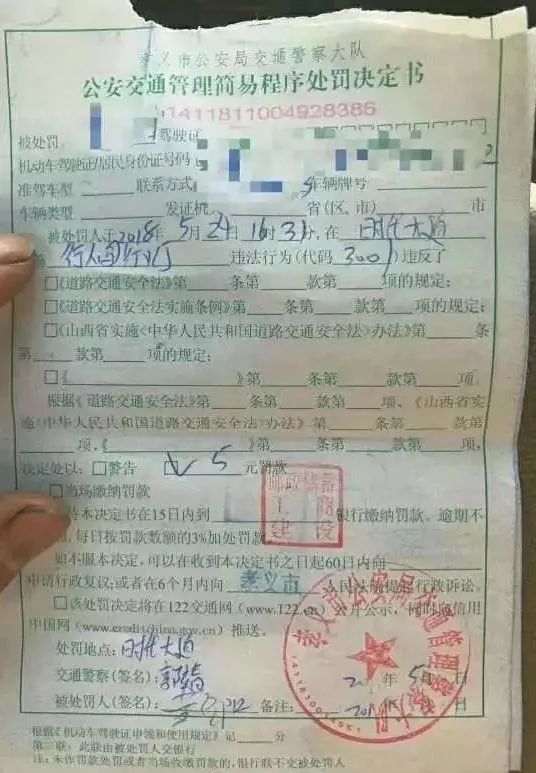 孝义市公安局交通警察大队
公安交通管理简易程序处罚决定书
1411811004928386
被处罚 驾驶证
机动车驾驶证/居民身份证号码
准驾车型 联系方式 车辆牌号
车辆类型 发证机 省(区、市) 市
被处罚人于2018年5月24日16时3分,在时代大道
行人闯红灯 违法行为(代码3001)违反了
□《道路交通安全法》第 条第 款第 项的规定;
□《道路交通安全法实施条例》第 条第 款第 项的规定;
□《山西省实施〈中华人民共和国道路交通安全法〉办法》第 条
第 款第 项的规定;
□《 》第 条第 款第 项。
根据《道路交通安全法》第 条第 款第 项、《山西省实
施〈中华人民共和国道路交通安全法〉办法》第 条第 款第
项、《 》第 条第 款第 项,
决定处以:□警告 5 元罚款
□当场缴纳罚款
持本决定书在15日内到 银行缴纳罚款。逾期不
每日按罚款数额的3%加处罚款。
如不服本决定,可以在收到本决定书之日起60日内向
申请行政复议;或者在6个月内向 孝义市 人民法院提起行政诉讼。
□该处罚决定将在122交通网(www.122.cn)公开公示,同时向信用
中国网(www.creditchina.gov.cn)推送。
处罚地点:时代大道
交通警察(签名): 年5月 日
被处罚人(签名): 备注: 201 年 月 日
根据《机动车驾驶证申领和使用规定》记 分
第三联:此联由被处罚人交银行
注:未作罚款处罚或者当场收缴罚款的,银行联不交被处罚人